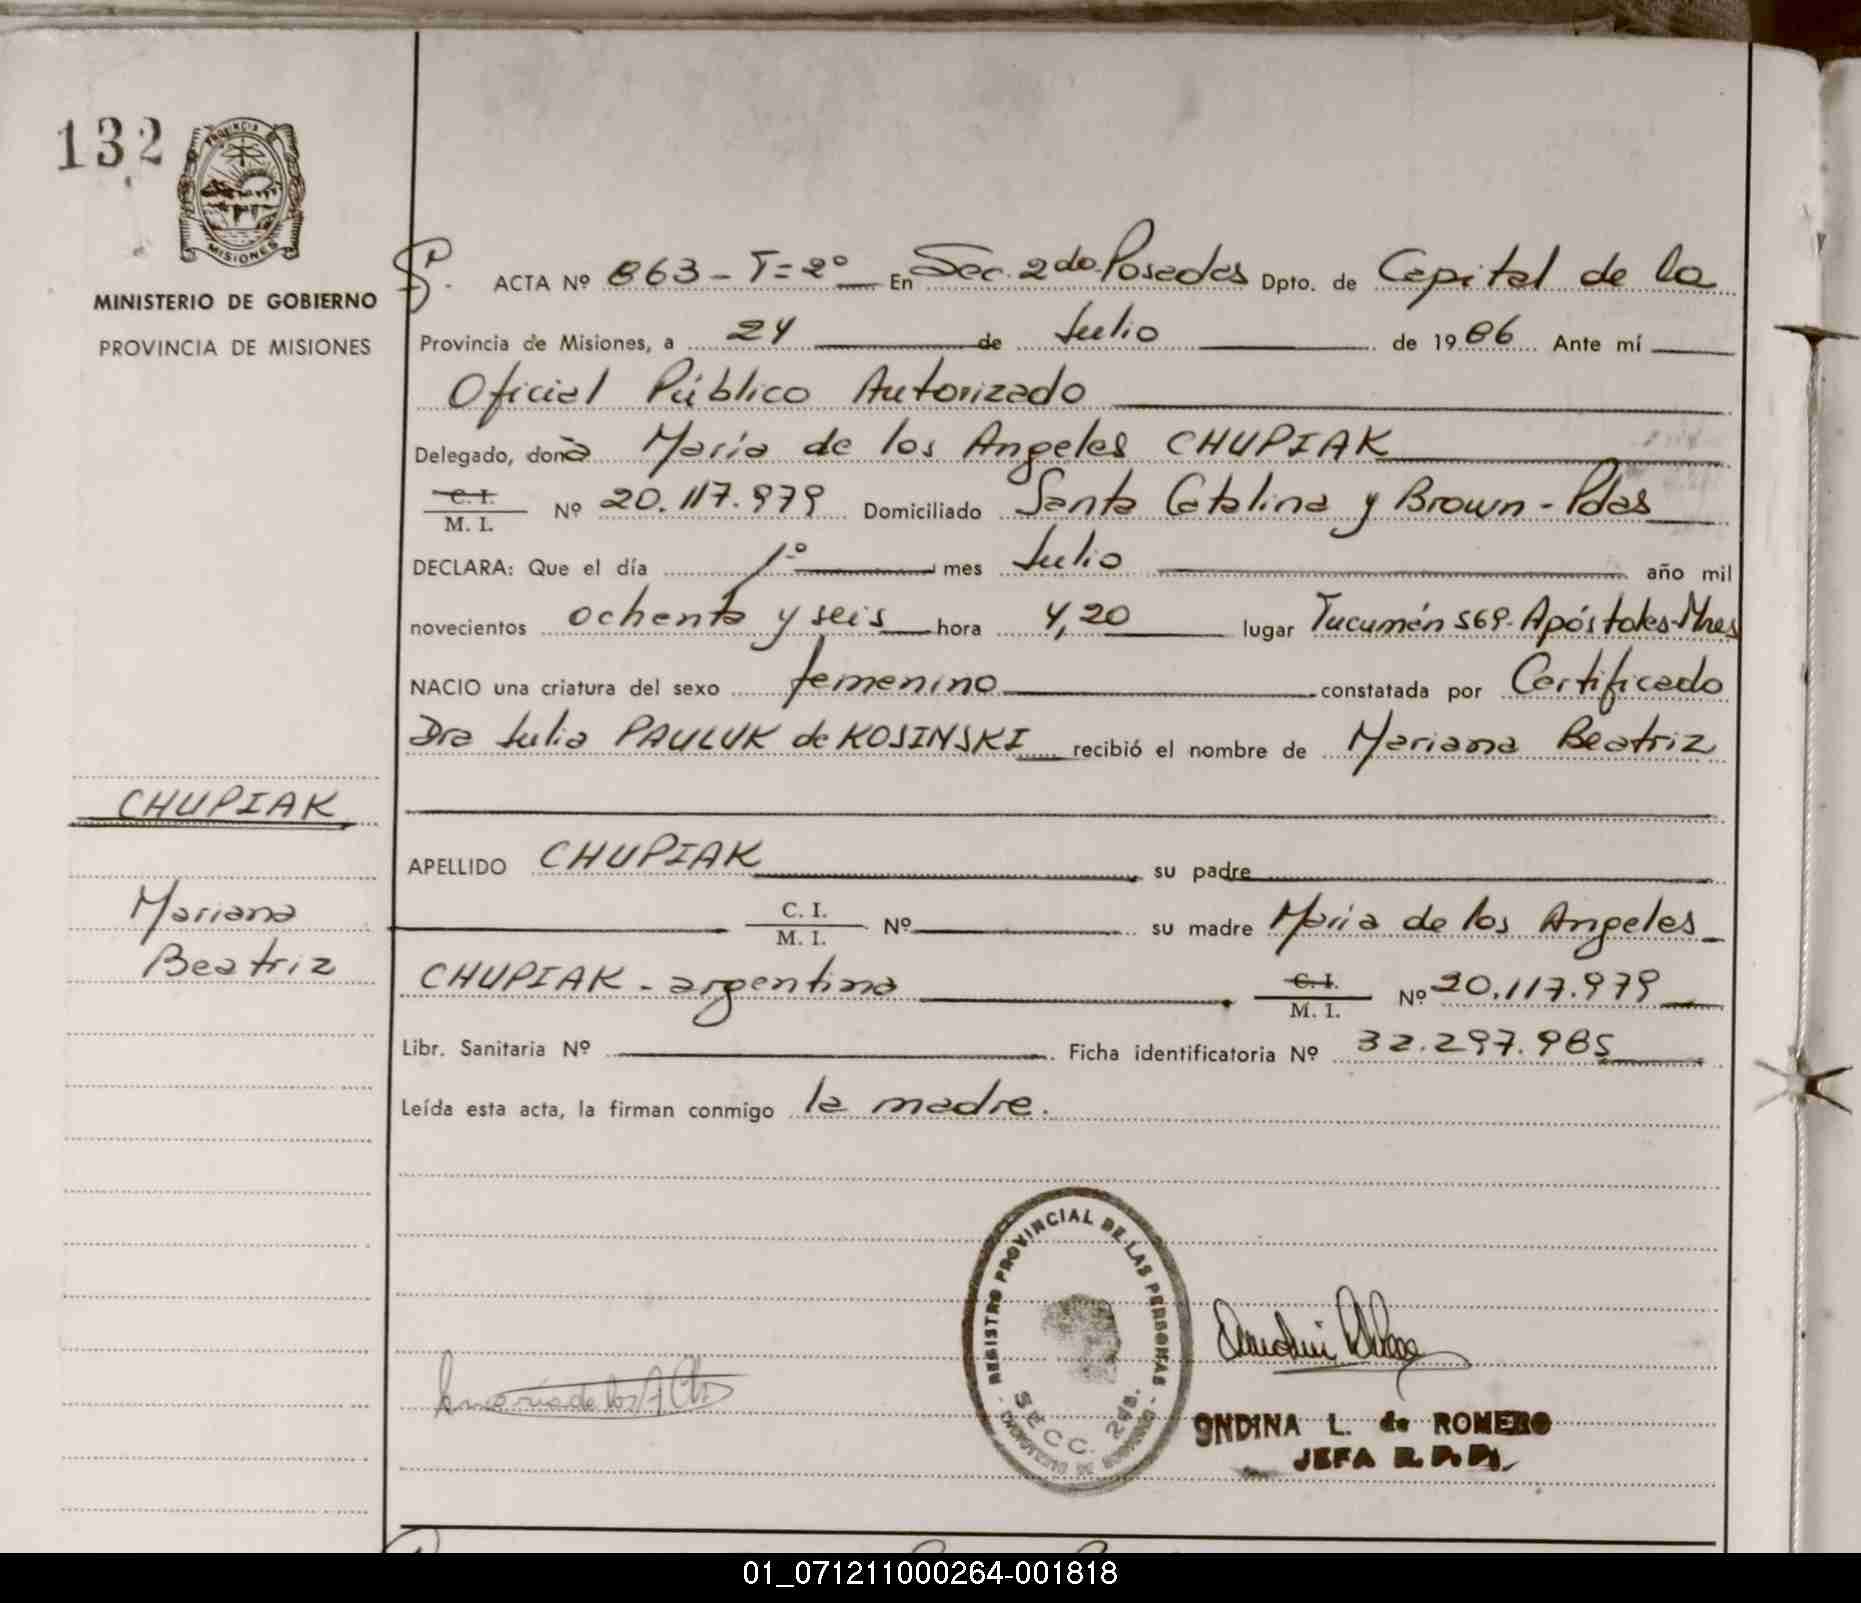 132
PROVINCIA DE
MISIONES
MINISTERIO DE GOBIERNO
PROVINCIA DE MISIONES
ACTA Nº 863 - T=2º En Sec. 2da Posadas Dpto. de Capital de la
Provincia de Misiones, a 24 de Julio de 1986 Ante mí
Oficial Público Autorizado
Delegado, donà María de los Angeles CHUPIAK
C. I.
M. I. Nº 20.117.979 Domiciliado Santa Catalina y Brown - Pdas
DECLARA: Que el día 1º mes Julio año mil
novecientos ochenta y seis hora 4,20 lugar Tucumán 569. Apóstoles-Mnes
NACIO una criatura del sexo femenino constatada por Certificado
Dra Julia PAULUK de KOSINSKI recibió el nombre de Mariana Beatriz
CHUPIAK
Mariana
Beatriz
APELLIDO CHUPIAK su padre
C. I.
M. I. Nº su madre María de los Angeles
CHUPIAK - argentina C. I.
M. I. Nº 20.117.979
Libr. Sanitaria Nº Ficha identificatoria Nº 32.297.985
Leída esta acta, la firman conmigo la madre.
REGISTRO PROVINCIAL DE LAS PERSONAS
SECC. 2da.
ONDINA L. de ROMERO
JEFA R.P.P.
01_071211000264-001818